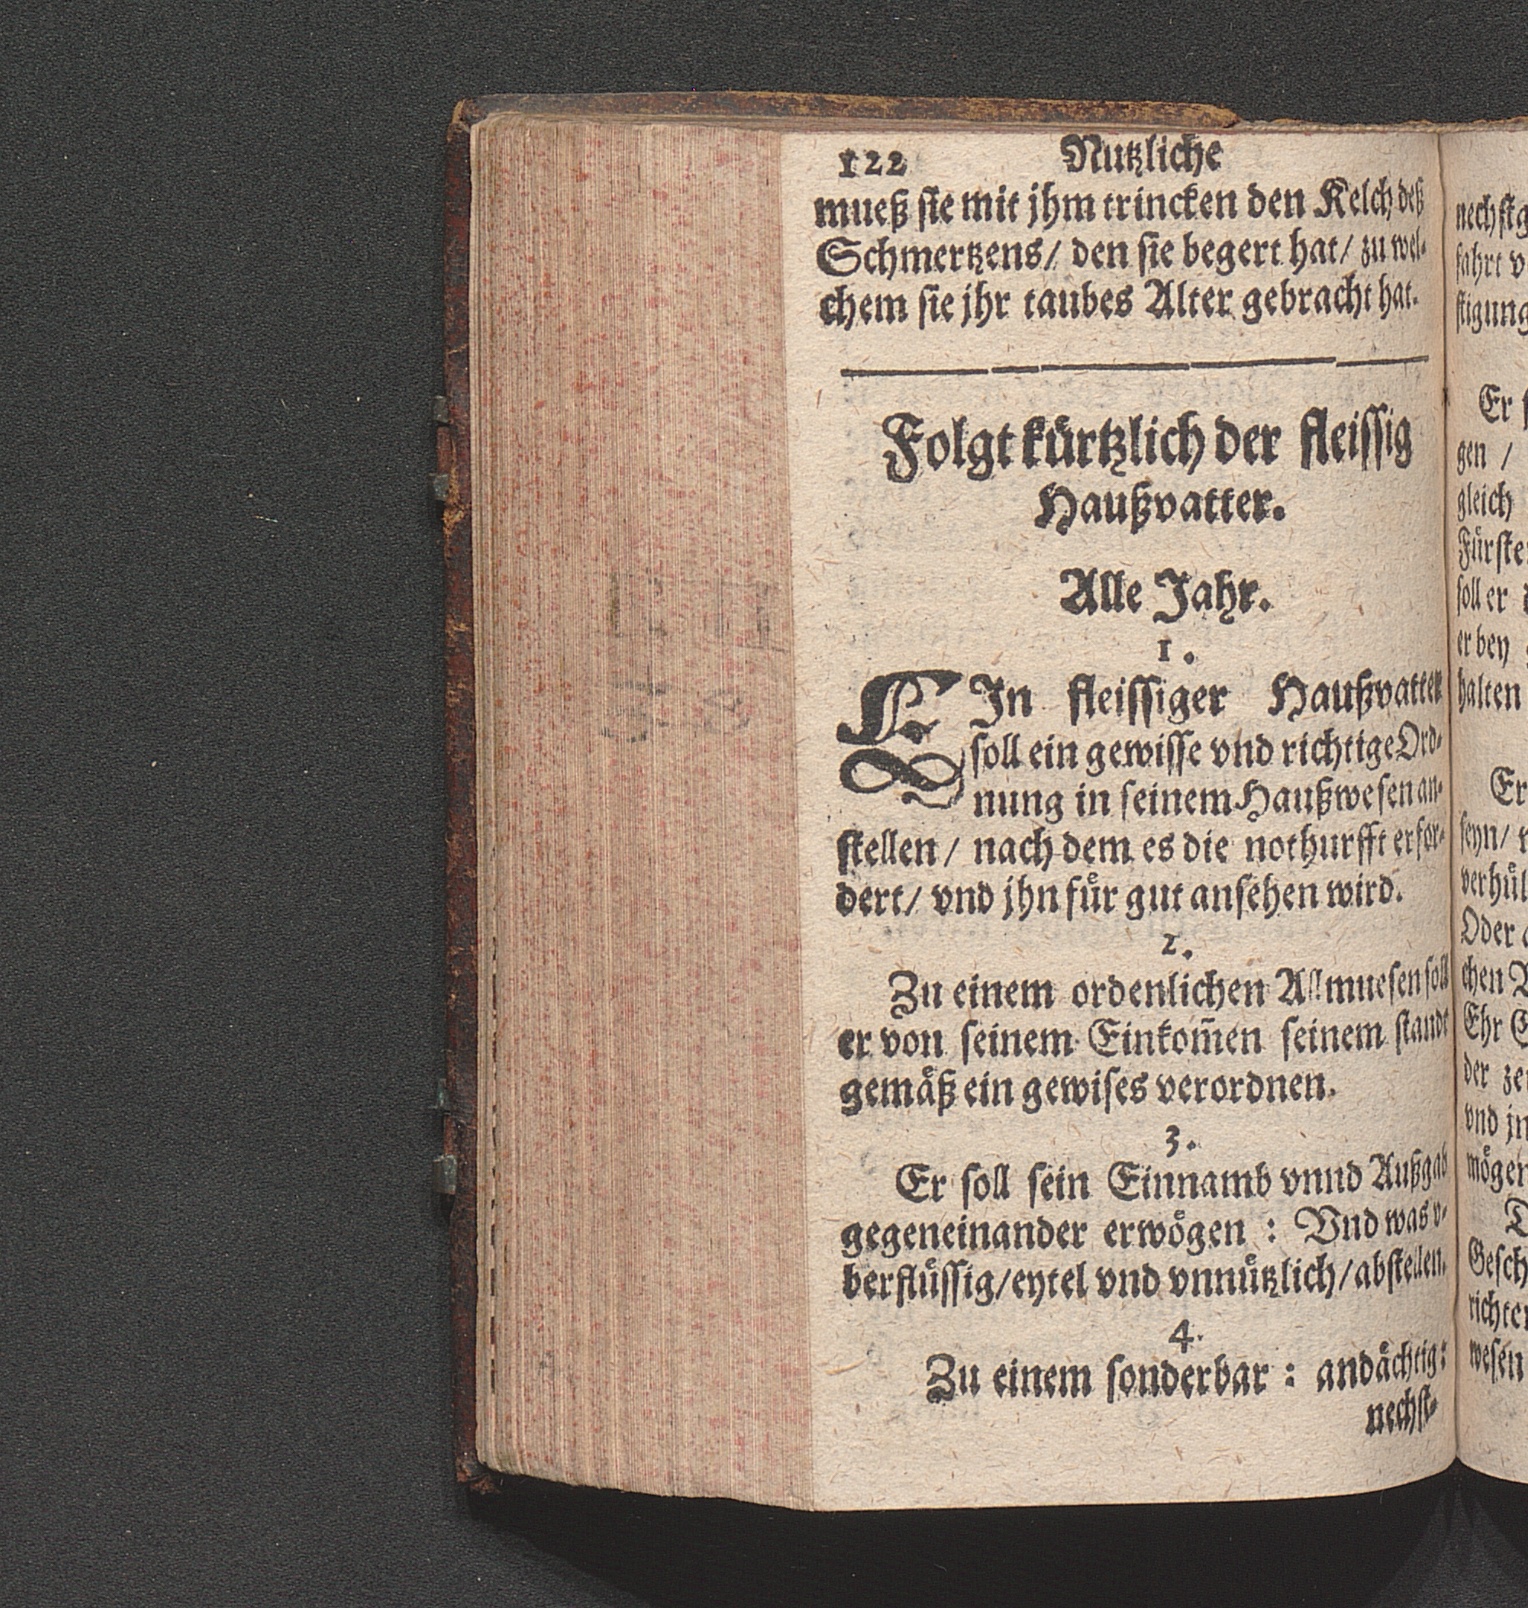 122 Nutzliche
mueß sie mit jhm trincken den Kelch deß
Schmertzens/ den sie begert hat/ zu wel-
chem sie jhr taubes Alter gebracht hat.
Folgt kürtzlich der fleissig
Haußvatter.
Alle Jahr.
1.
EIn fleissiger Haußvatter
soll ein gewisse vnd richtige Ord-
nung in seinem Haußwesen an-
stellen/ nach dem es die nothurfft erfor-
dert/ vnd jhn für gut ansehen wird.
2.
Zu einem ordenlichen Allmuesen soll
er von seinem Einkom̃en seinem standt
gemäß ein gewises verordnen.
3.
Er soll sein Einnamb vnnd Außgab
gegeneinander erwögen : Vnd was v-
berflüssig/eytel vnd vnnützlich/abstellen.
4.
Zu einem sonderbar : andächtig:
nechst-
nechstg
fahrt v
stigung
Er s
gen /
gleich
Fürste
soll er
er bey
halten
Er
seyn/
verhül
Oder
chen
Ehr
der ze
vnd jn
mögen
Gesch
richte
wesen